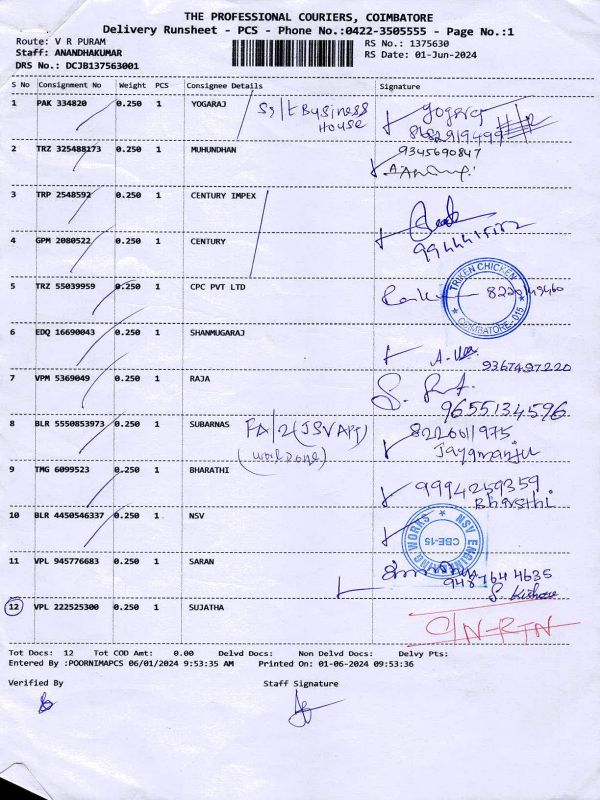 THE PROFESSIONAL COURIERS, COIMBATORE
Delivery Runsheet - PCS - Phone No.:0422-3505555 - Page No.:1
Route: V R PURAM
RS No.: 1375630
Staff: ANANDHAKUMAR
RS Date: 01-Jun-2024
DRS No.: DCJB137563001
S No Consignment No Weight PCS Consignee Details Signature
1 PAK 334820 0.250 1 YOGARAJ
S3/t Business
House
2 TRZ 325488173 0.250 1 MUHUNDHAN 9345690847
3 TRP 2548592 0.250 1 CENTURY IMPEX
4 GPM 2080522 0.250 1 CENTURY
5 TRZ 55039959 0.250 1 CPC PVT LTD
TRKEN CHICKEN
COIMBATORE-015
6 EDQ 16690043 0.250 1 SHANMUGARAJ
9367497220
7 VPM 5369049 0.250 1 RAJA
9655134596
8 BLR 5550853973 0.250 1 SUBARNAS FA/2(JSVAPt) 8220011975
Jayamanju
9 TMG 6099523 0.250 1 BHARATHI 9994259359
Bharathi
10 BLR 4450546337 0.250 1 NSV
NSV ENGINEERING WORKS
CBE-15
11 VPL 945776683 0.250 1 SARAN
S. Kishore
12 VPL 222525300 0.250 1 SUJATHA
O/N-RTN
Tot Docs: 12 Tot COD Amt: 0.00 Delvd Docs: Non Delvd Docs: Delvy Pts:
Entered By :POORNIMAPCS 06/01/2024 9:53:35 AM Printed On: 01-06-2024 09:53:36
Verified By Staff Signature